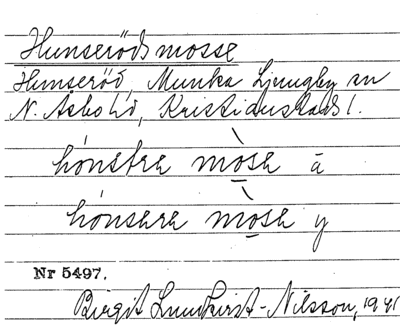 Hunserödsmosse
Hunseröd, Munka Ljungby sn
N. Åsbo hd, Kristianstads l.
hónsfra mòsa ā
hónsara mòsa y
Nr 5497.
Birgit Lundkvist-Nilsson, 1941